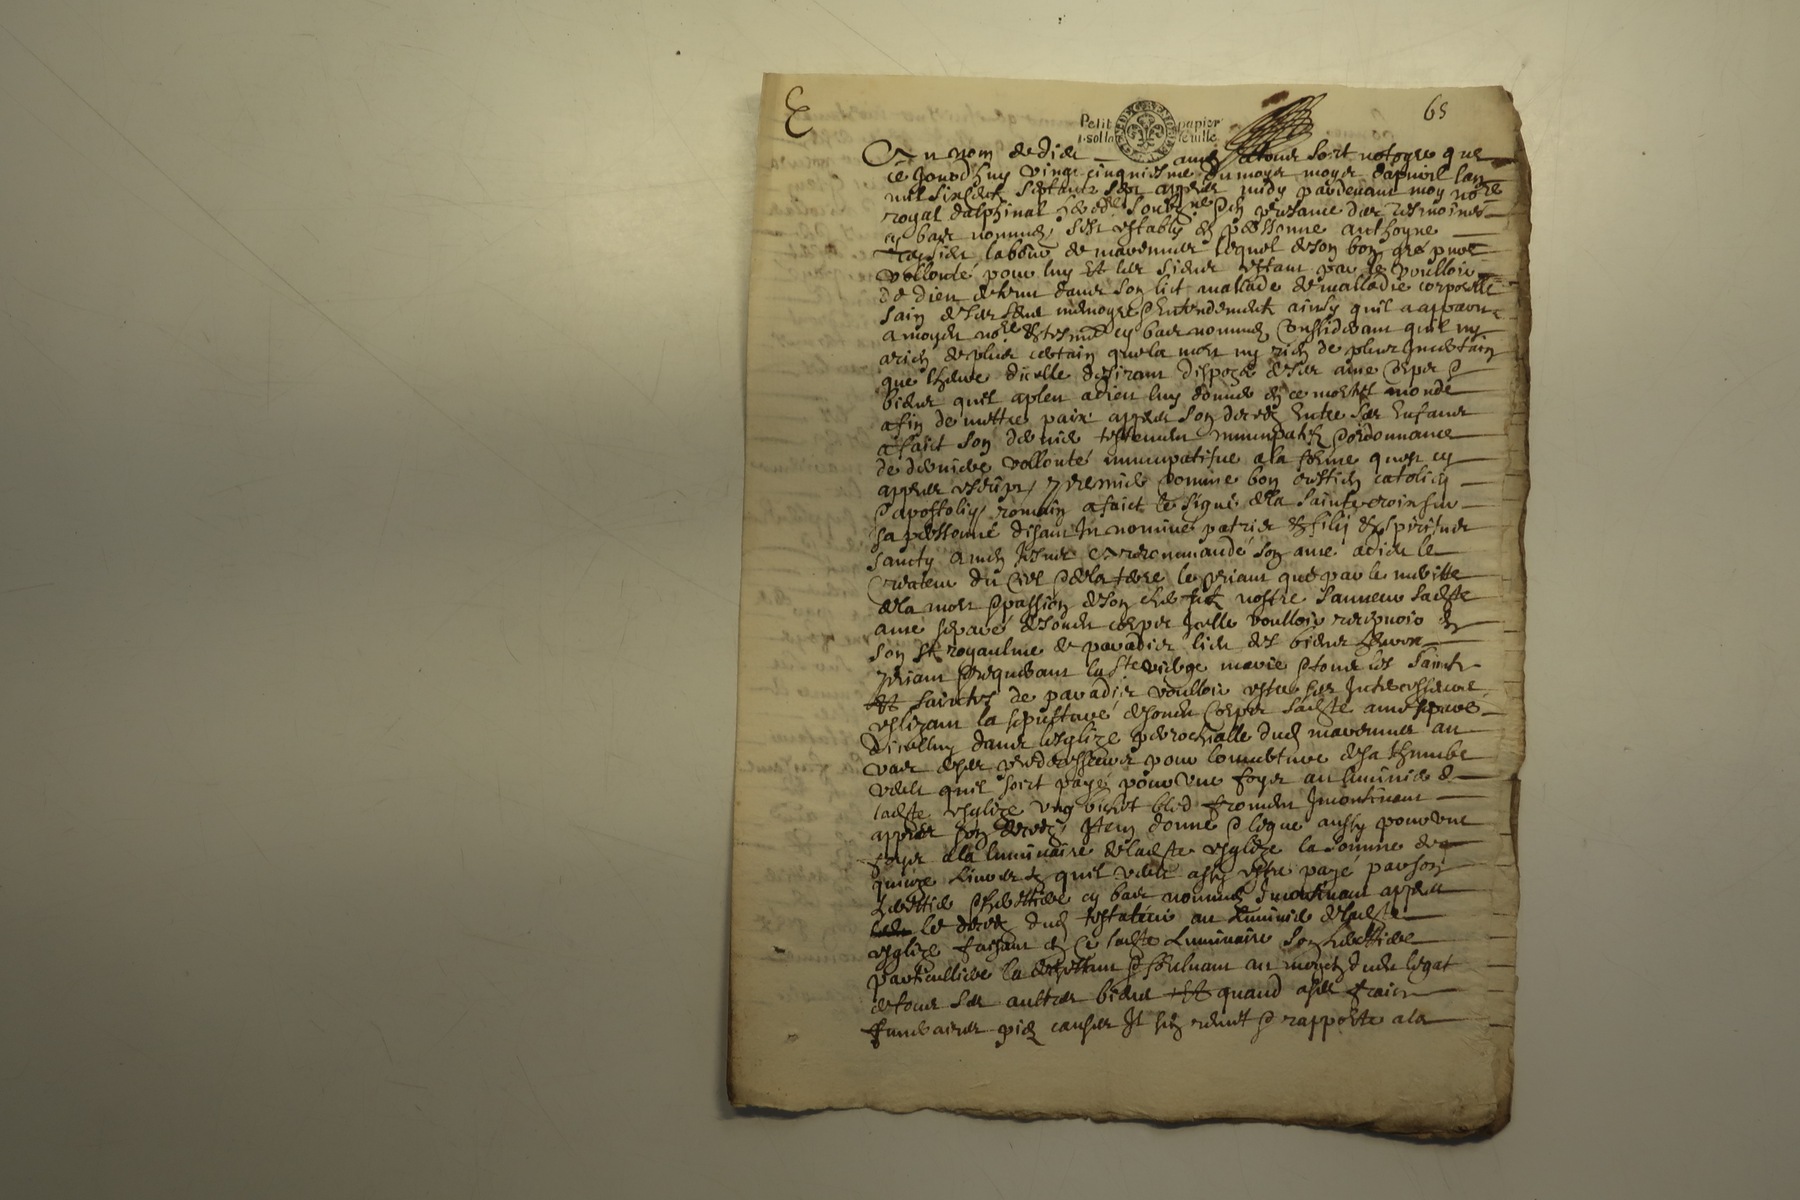 65
Petit papier
1. sol la feuille
Au nom de dieu amen a tous soit notoyre que
ce Jourdhuy vingt cinquiesme du moys dapvril lan
mil six cent septante sept appres midy pardevant moy no.re
royal dalphinal soub.ne & en presance des tesmoings
cy bas nommes sest estably en personne anthoyne
labour de lequel de son bon gre pure
vollonté pour luy et les siens estant par le voulloir
de dieu detenu dans son lict mallade de malladie corporelle
sain de ses sens memoyre & entendement ainsy quil a apparu
a moydit no.re & tesmoins cy bas nommes Considerant quil ny
a rien de plus certain que la mort ny rien de plus Incertain
que lheure dicelle desirant disposer de ses ame Corps &
biens quil a pleu a dieu luy donner en ce mortel monde
afin de mettre paix appres son deces Entre ses Enfans
a faict son dernier testement nuncupatif & ordonnance
de derniere vollonté nuncupatifue a la forme quest cy
appres escript premier comme bon crestien catolicq
& apostolicq romain a faict le signe de la sainte croix sur
sa personne disant In nomine patris & filij & spiritus
sancty amen Jesus a recommandé son ame a dieu le
Createur du Ciel & de la terre le priant que par le meritte
de la mort & passion de son cher filz nostre sauveur ladite
ame separé de sondit corps Icelle voulloir recepvoir en
son st royaulme de paradis lieu des biens heureux
priant & requerant la ste vierge marie & tous les saints
et saintes de paradis voulloir estre ses Intercesseurs
eslizant la sepulture de sondit Corps ladite ame separé
dicelluy dans lesglize parrochialle dudit au
vas de ses predecesseurs pour louverture de sa thumbe
veult quil soit payé pour une foys au luminier de
ladite esglize ung bichet bled froment Incontinant
appres son deces Item donne & legue aussy pour une
foys a la luminaire de ladite esglize la somme de
quinze livres quil veult estre payé par son
heritier cy bas nommes Incontinant appres
le deces dudit testateur au luminier de ladite
esglize faisant en ce ladite Luminaire son heritiere
particulliere la & excluant au moyen dudit legat
de tous ses aultres biens et quand a ses frais
funeraires pies causes Il sen remet & rapporte a la